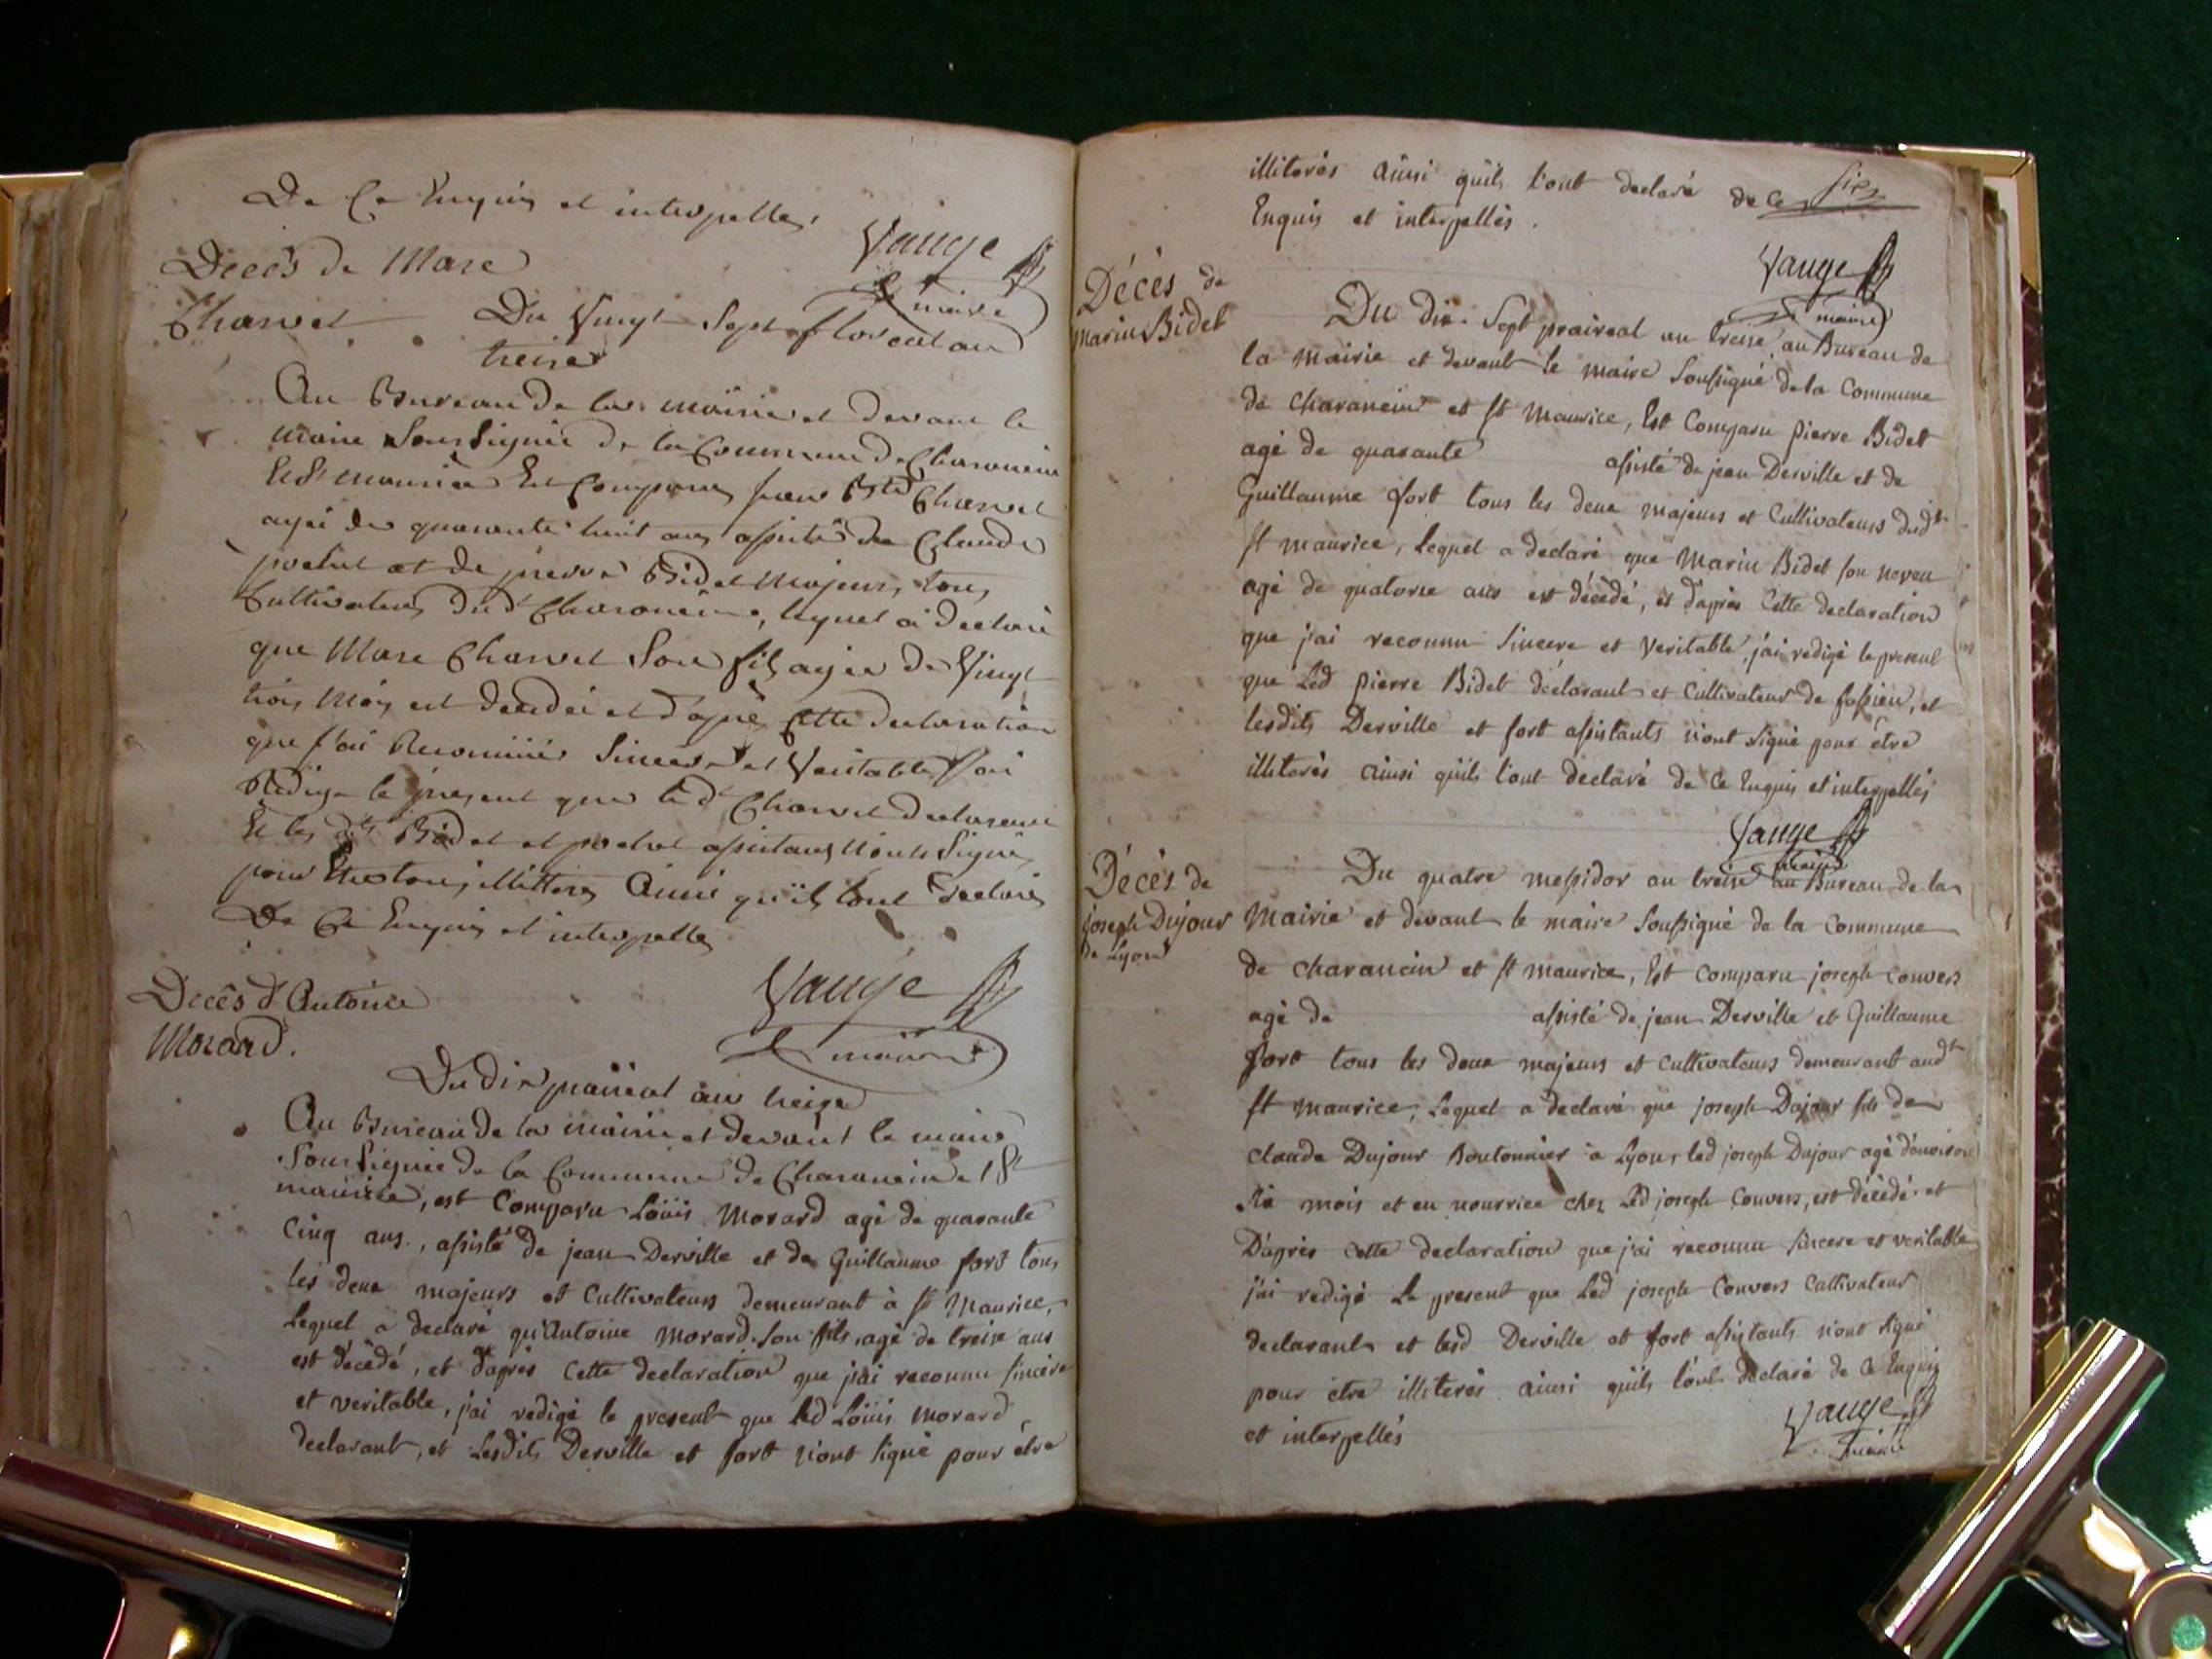 De Ce Enquis et interpellés
Vauge
maire
Decés de Marc
Charvet
Du Vingt Sept floreal an
treise
Au Bureau de la mairie et devant le
maire Soussigné de la Commune de Charancin
Et St maurice Est Comparu jean Bte Charvet
agé de quarante huit ans assisté de Claude
et de pierre Bidet Majeurs, tous
Cultivateurs dudt Charancin, lequel a declaré
que Marc Charvet Son fils agé de Vingt
trois Mois est decedé et d'après Cette declaration
que j'ai Reconnue Sincere et Veritable j'ai
Rédigé le present que led Charvet declarant
Et les dts Bidet et assistants n'ont Signé
pour Etre tous illitterés Ainsi qu'ils l'ont declaré
De Ce Enquis et interpellés
Vauge
maire
Decés d'Antoine
Morard.
Du dix prairial an treize
Au Bureau de la mairie et devant le maire
Soussigné de la Commune de Charancin et St
maurice, est Comparu Loüis Morard agé de quarante
Cinq ans, assisté de jean Derville et de Guillaume fort tous
les deux majeurs et Cultivateurs demeurant à St Maurice,
Lequel a declaré qu'Antoine Morard son fils, agé de treise ans
est décédé, et d'après Cette declaration que j'ai reconnu sincère
et veritable, j'ai redigé le present que led Loüis Morard
declarant, et Lesdits Derville et fort n'ont signé pour être
illiterés ainsi qu'ils l'ont declaré de Ce
Enquis et interpellés.
Vauge
maire
Décés de
marin Bidet
Du dix Sept prairéal an treise au Bureau de
la mairie et devant le maire Soussigné de la Commune
de charancin et St maurice, Est Comparu pierre Bidet
agé de quarante assisté de jean Derville et de
Guillaume fort tous les deux majeurs et Cultivateurs dudt
St maurice, Lequel a declaré que Marin Bidet son neveu
agé de quatorse ans est décédé, et d'après Cette declaration
que j'ai reconnu Sincere et Veritable, j'ai redigé le present
que Led pierre Bidet déclarant et Cultivateur de fassieu, et
lesdits Derville et fort assistants n'ont signé pour être
illiterés ainsi qu'ils l'ont declaré de Ce Enquis et interpellés
Vauge
maire
Décés de
joseph Dujour
de Lyon
Du quatre messidor an treise au Bureau de la
Mairie et devant le maire Soussigné de la Commune
de charancin et St maurice, Est comparu joseph Convers
agé de assisté de jean Derville et Guillaume
fort tous les deux majeurs et cultivateurs demeurant audt
St maurice, Lequel a declaré que joseph Dujour fils de
claude Dujour Boutonnier à Lyon, led joseph Dujour agé d'environ
six mois et en nourrice chez Led joseph Convers, est décédé et
D'après cette declaration que j'ai reconnu sincere et veritable
j'ai redigé Le present que Led joseph Convers Cultivateur
declarant et lesd Derville et fort assistants n'ont signé
pour être illiterés ainsi qu'ils l'ont declaré de Ce Enquis
et interpellés
Vauge
maire